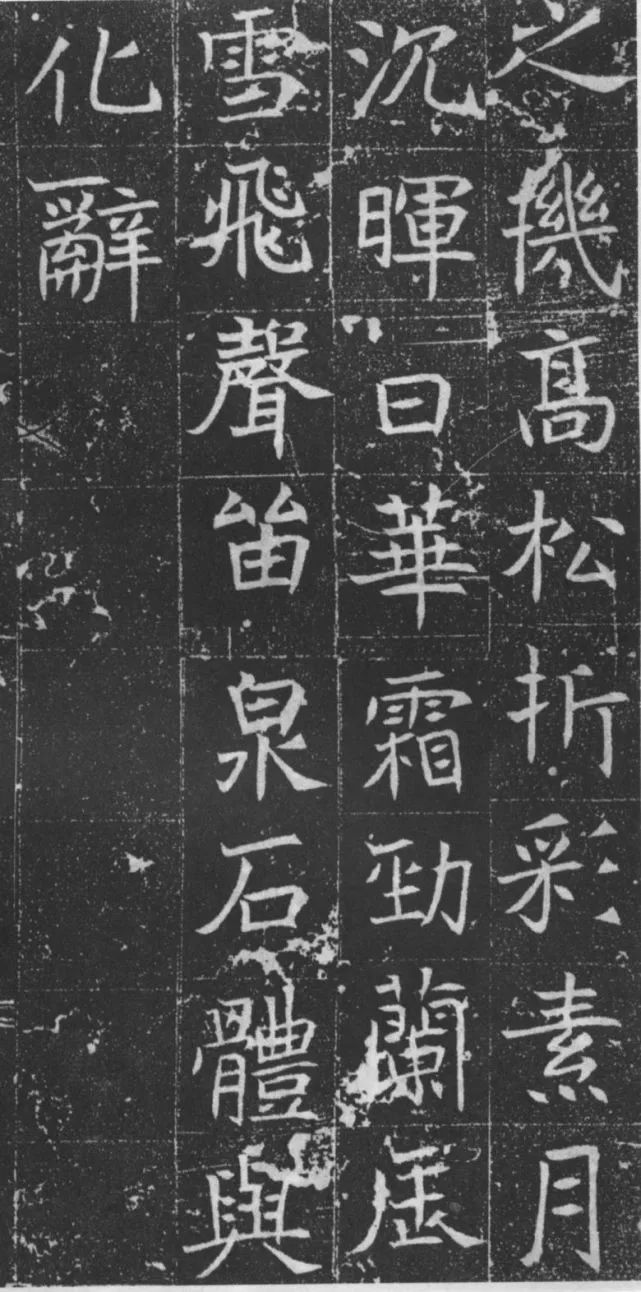 之機高松折彩素月
沉暉日華霜勁蘭
雪飛聲留泉石體與
化辭